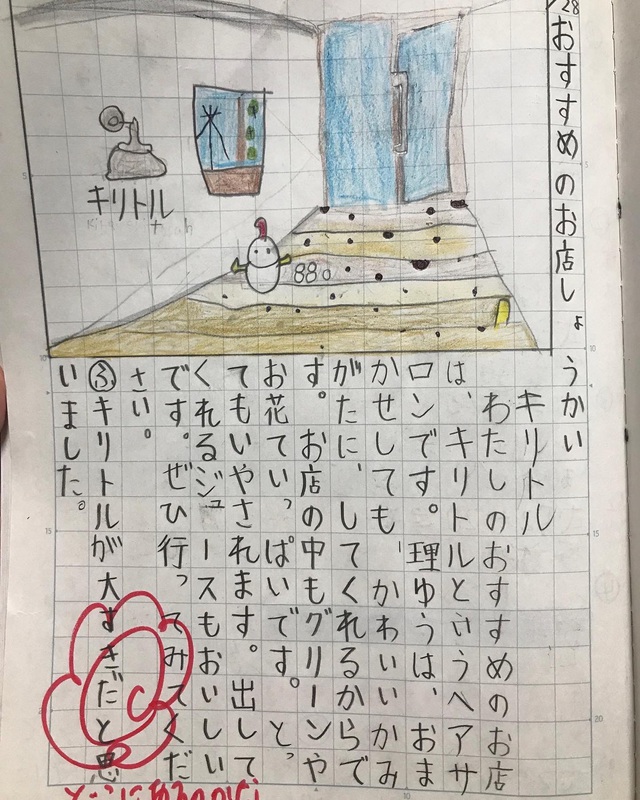 28
おすすめのお店しょうかい
キリトル
わたしのおすすめのお店
は、キリトルというヘアサ
ロンです。理ゆうは、おま
かせしても、かわいいかみ
がたに、してくれるからで
す。お店の中もグリーンや
お花ていっぱいです。とっ
てもいやされます。出して
くれるジュースもおいしい
です。ぜひ行ってみてくだ
さい。
㋫キリトルが大すきだと思
いました。
キリトル